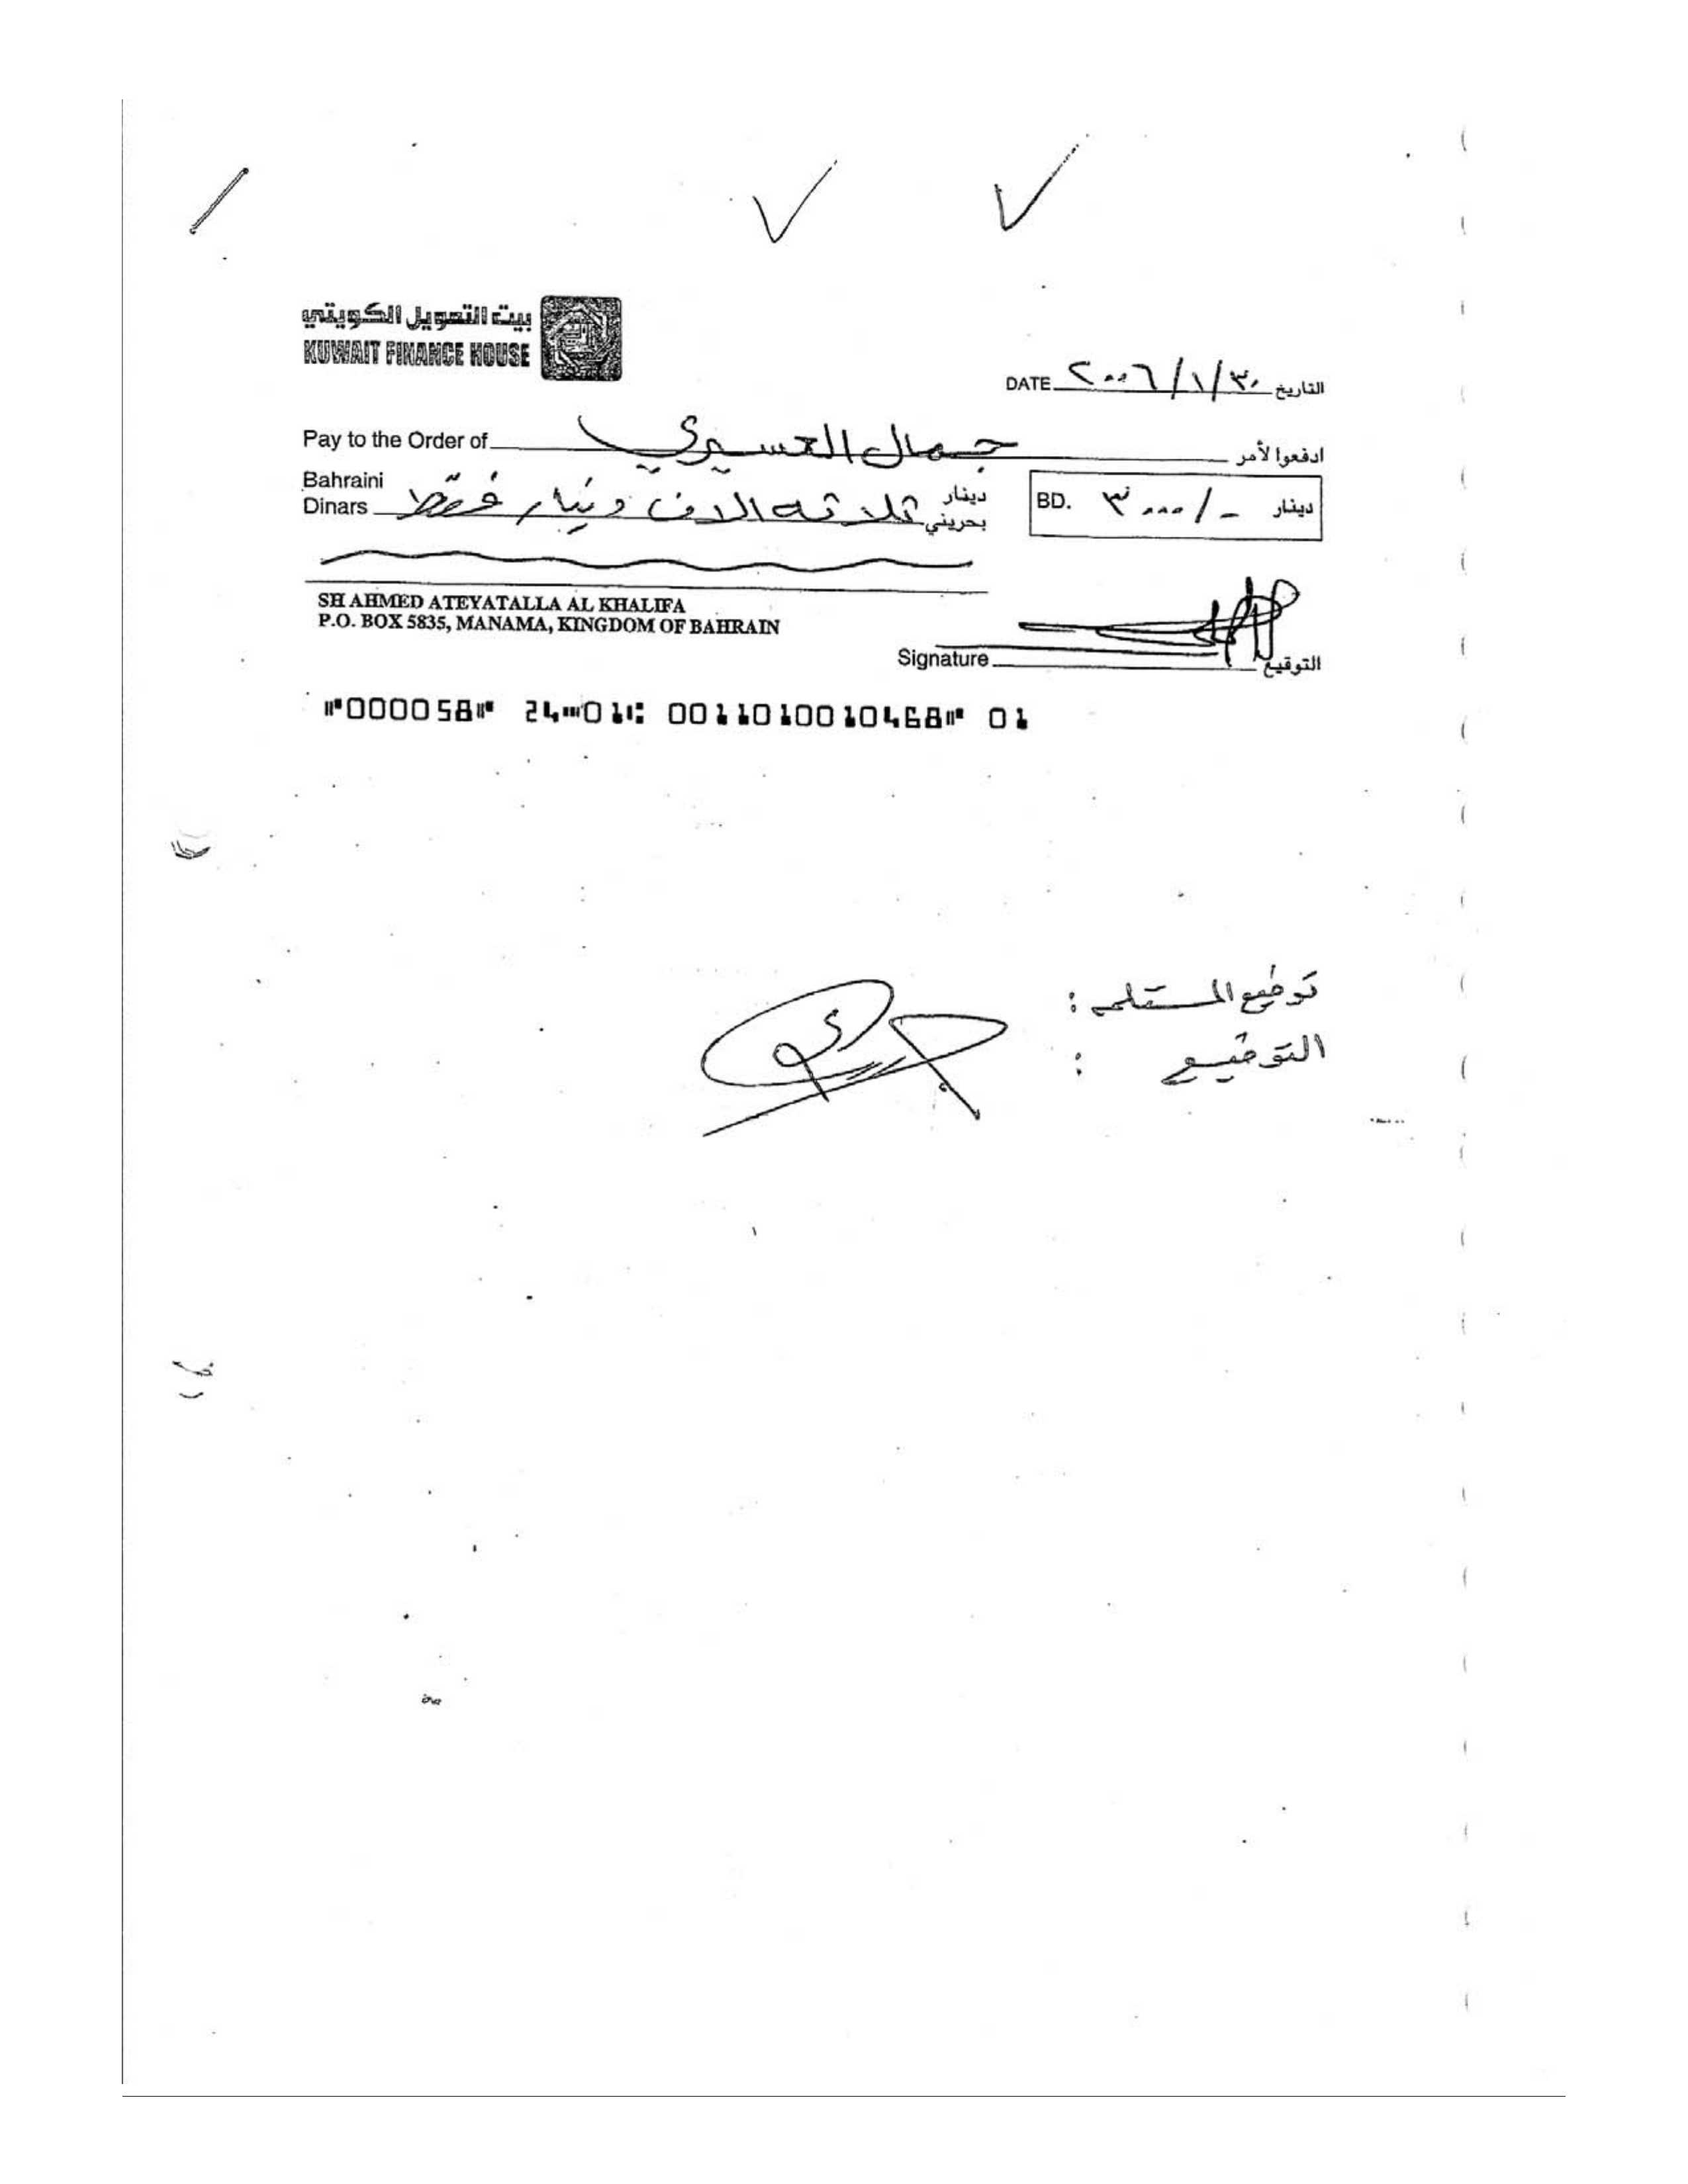 بيت التمويل الكويتي
KUWAIT FINANCE HOUSE
DATE ٢٠٠٦/١/٣٠ التاريخ
Pay to the Order of جمال العسيري ادفعوا لأمر
Bahraini Dinars ثلاثة الاف دينار فقط دينار بحريني
BD. ٣٠٠٠/- دينار
SH AHMED ATEYATALLA AL KHALIFA
P.O. BOX 5835, MANAMA, KINGDOM OF BAHRAIN
Signature التوقيع
⑈000058⑈ 24⑉01⑆ 0011010010468⑈ 01
توقيع المستلم :
التوقيع :